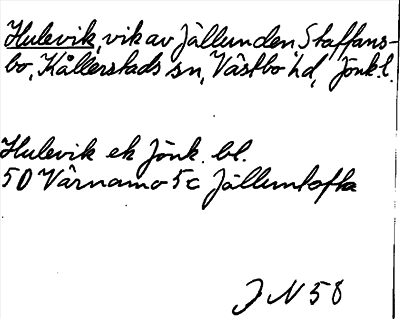 Hulevik, vik av Jällunden, Staffans-
bo, Kållerstads sn, Västbo hd, Jönk.l.
Hulevik ek Jönk. bl.
5D Värnamo 5c Jälluntofta
J N 58